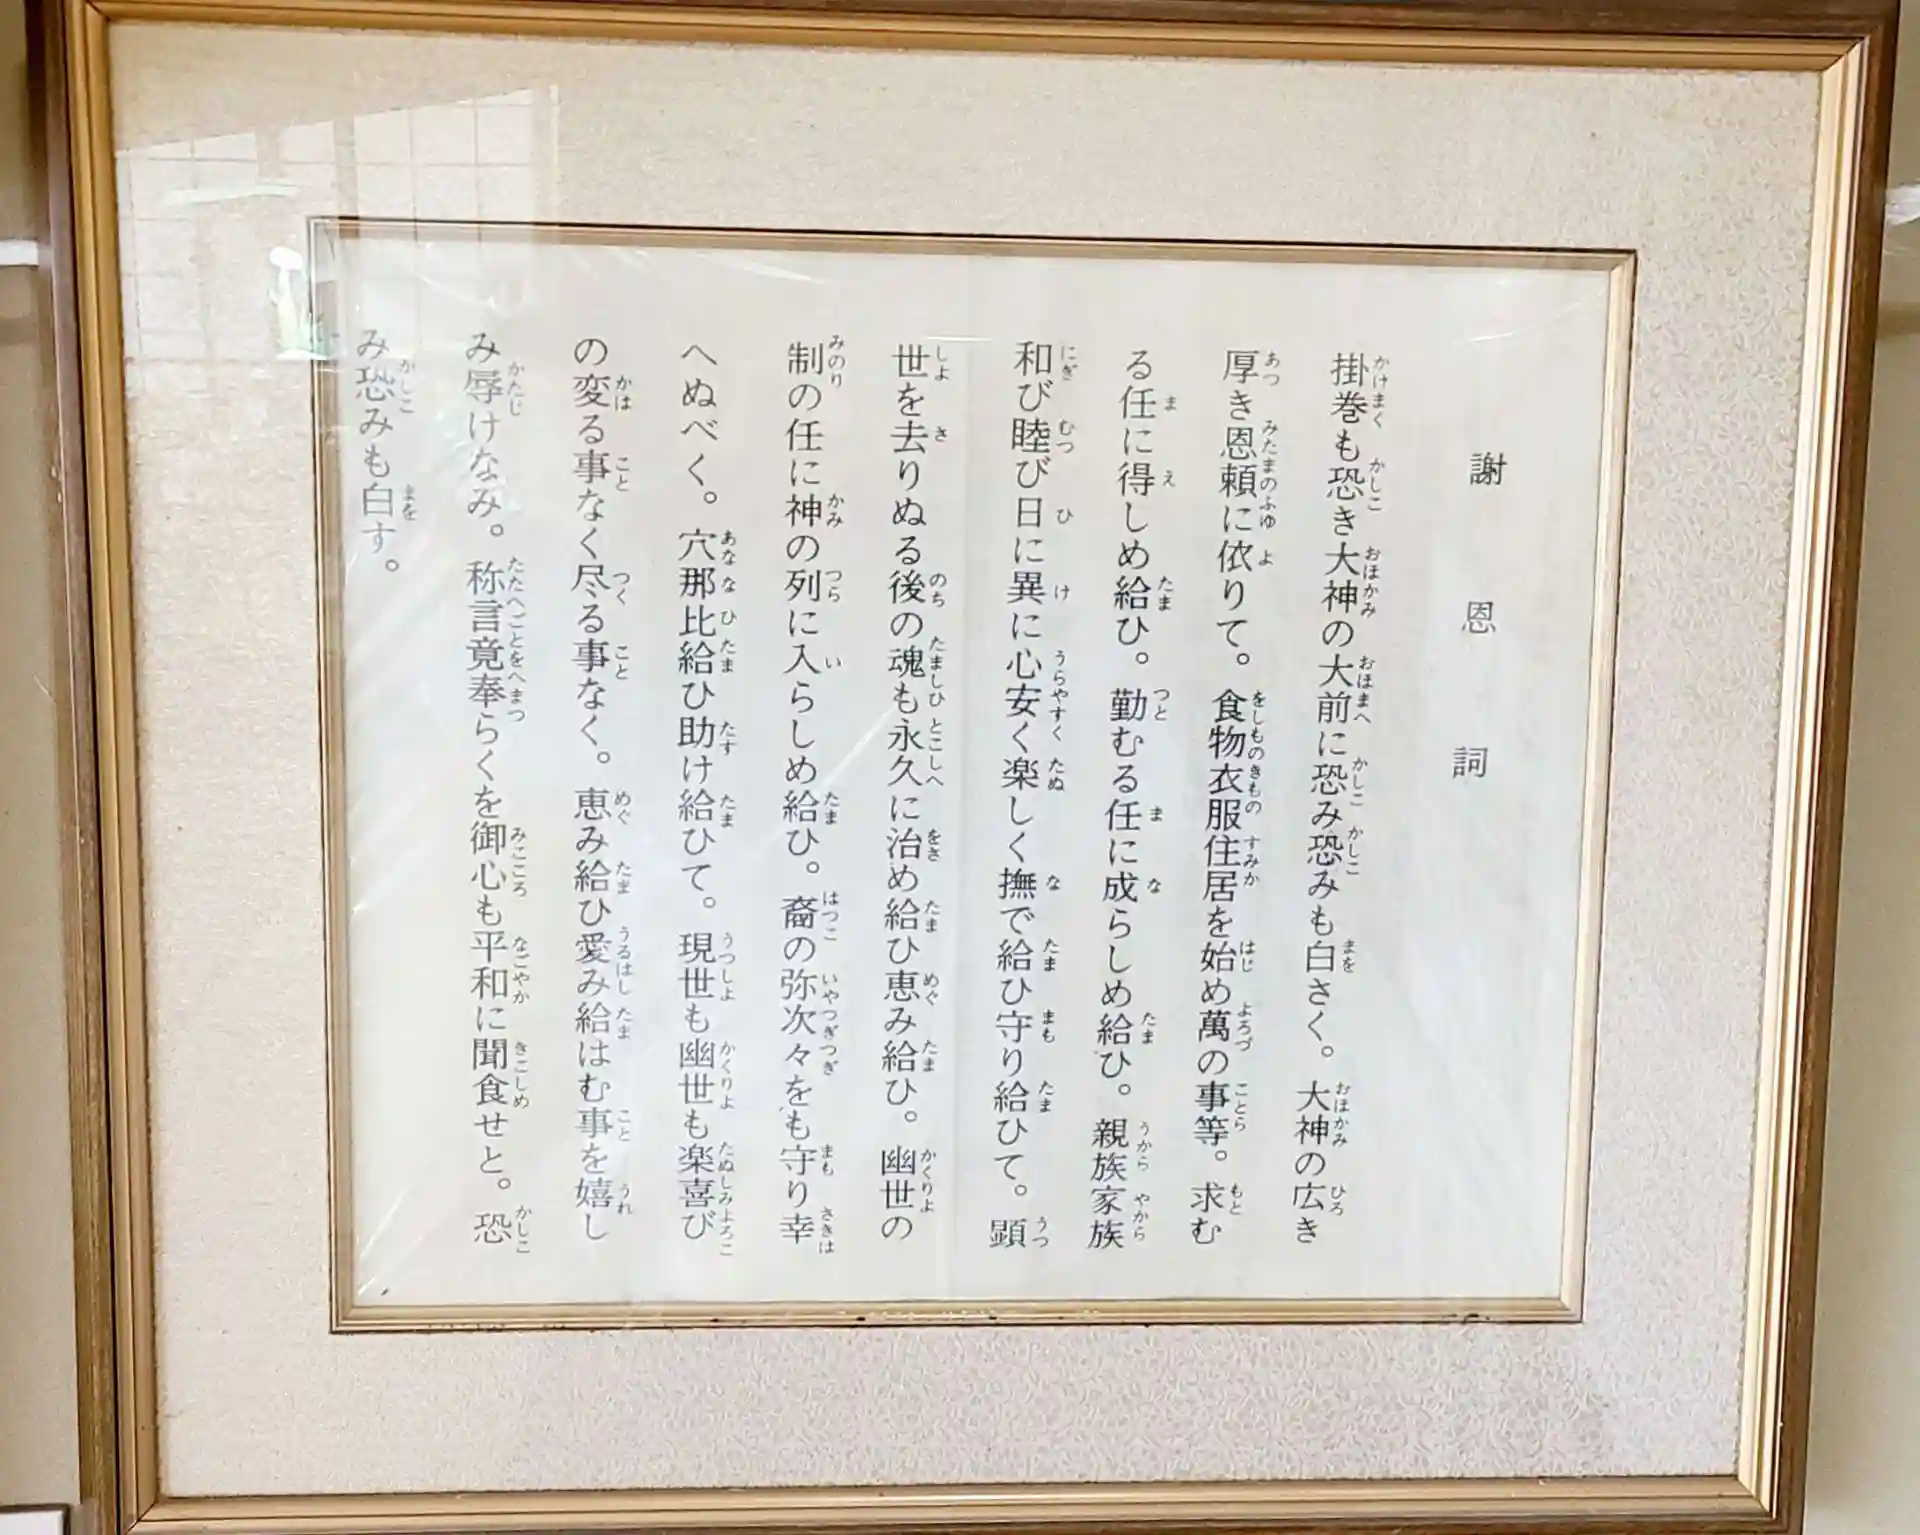 謝恩詞
掛巻も恐き大神の大前に恐み恐みも白さく。大神の広き
厚き恩頼に依りて。食物衣服住居を始め萬の事等。求む
る任に得しめ給ひ。勤むる任に成らしめ給ひ。親族家族
和び睦び日に異に心安く楽しく撫で給ひ守り給ひて。顕
世を去りぬる後の魂も永久に治め給ひ恵み給ひ。幽世の
制の任に神の列に入らしめ給ひ。裔の弥次々をも守り幸
へぬべく。穴那比給ひ助け給ひて。現世も幽世も楽喜び
の変る事なく尽る事なく。恵み給ひ愛み給はむ事を嬉し
み辱けなみ。称言竟奉らくを御心も平和に聞食せと。恐
み恐みも白す。